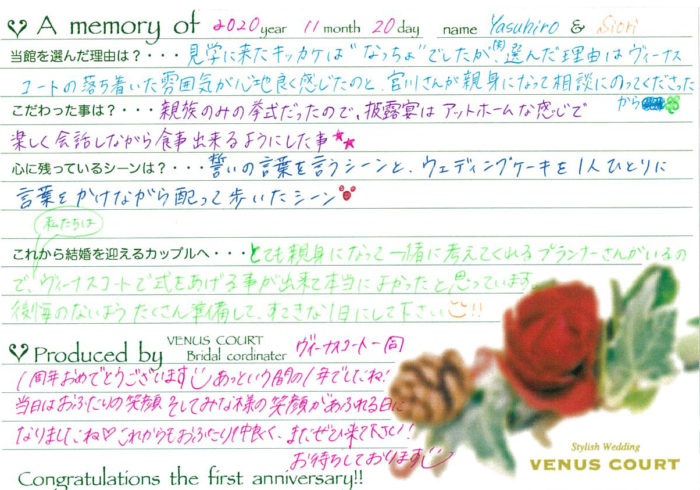 A memory of 2020 year 11 month 20 day name Yasuhiro & Siori
当館を選んだ理由は？・・・見学に来たキッカケは"なっちょ"でしたが、選んだ理由はヴィーナス
コートの落ち着いた雰囲気が心地良く感じたのと、宮川さんが親身になって相談にのってくださった
から
こだわった事は？・・・親族のみの挙式だったので、披露宴はアットホームな感じで
楽しく会話しながら食事出来るようにした事
心に残っているシーンは？・・・誓いの言葉を言うシーンと、ウェディングケーキを1人ひとりに
言葉をかけながら配って歩いたシーン
私たちは
これから結婚を迎えるカップルへ・・・とても親身になって一緒に考えてくれるプランナーさんがいるの
で、ヴィーナスコートで式をあげる事が出来て本当によかったと思っています。
後悔のないようたくさん準備して、すてきな1日にして下さい!!
Produced by VENUS COURT Bridal cordinater ヴィーナスコート一同
1周年おめでとうございます あっという間の1年でしたね!
当日はおふたりの笑顔 そしてみな様の笑顔があふれる日に
なりましたね♡これからもおふたり仲良く、またぜひ来て下さい!
お待ちしております
Congratulations the first anniversary!!
Stylish Wedding
VENUS COURT